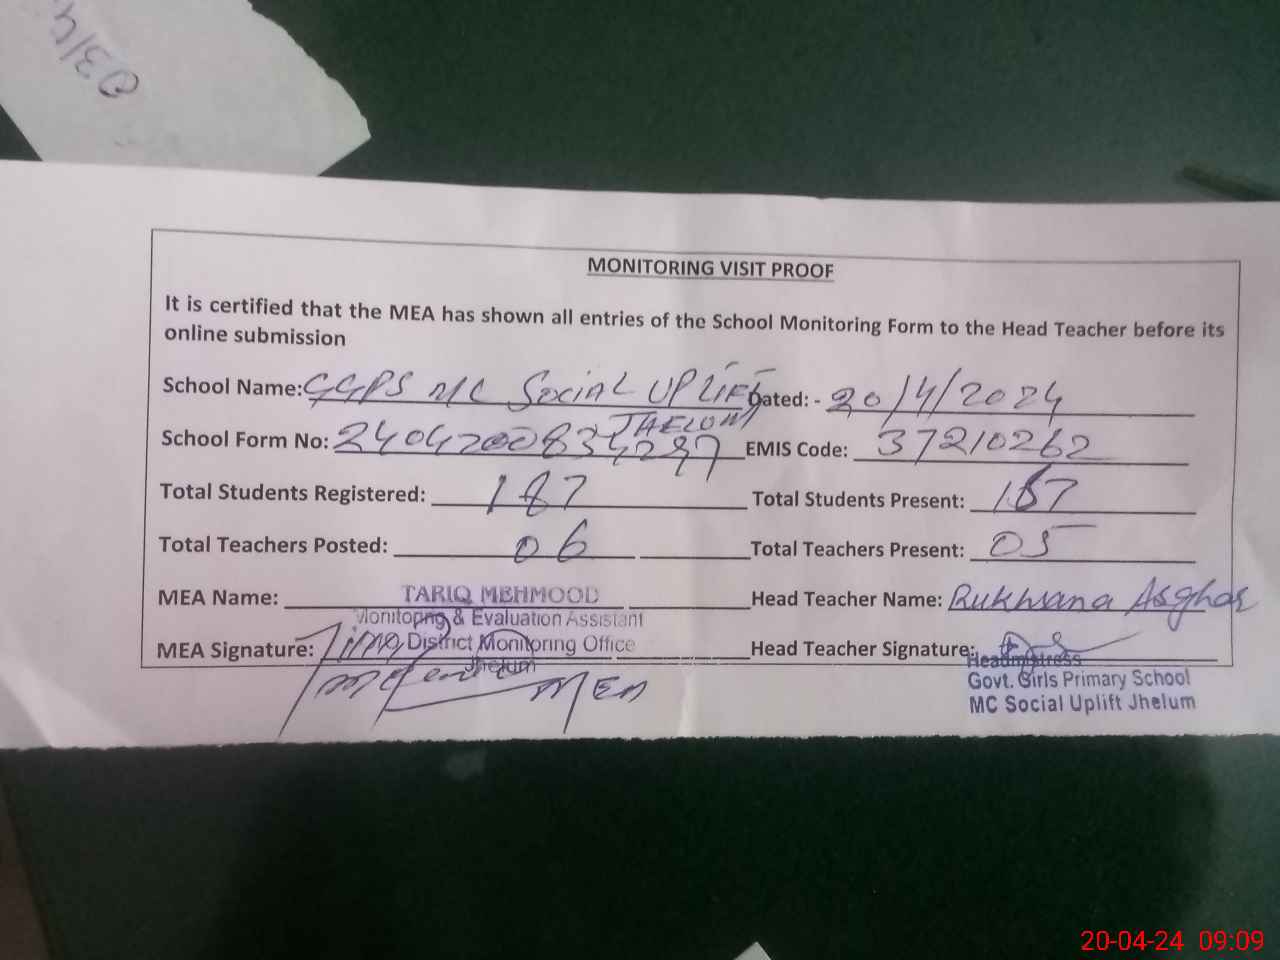 03/4
MONITORING VISIT PROOF
It is certified that the MEA has shown all entries of the School Monitoring Form to the Head Teacher before its
online submission
School Name: GGPS MC Social UPLIFT Dated: - 20/4/2024
JHELUM
School Form No: 240420083534297 EMIS Code: 37210262
Total Students Registered: 187 Total Students Present: 187
Total Teachers Posted: 06 Total Teachers Present: 05
MEA Name: TARIQ MEHMOOD Head Teacher Name: Rukhsana Asghar
Monitoring & Evaluation Assistant
MEA Signature: District Monitoring Office Head Teacher Signature:
Jhelum Headmistress
MEA Govt. Girls Primary School
MC Social Uplift Jhelum
20-04-24 09:09